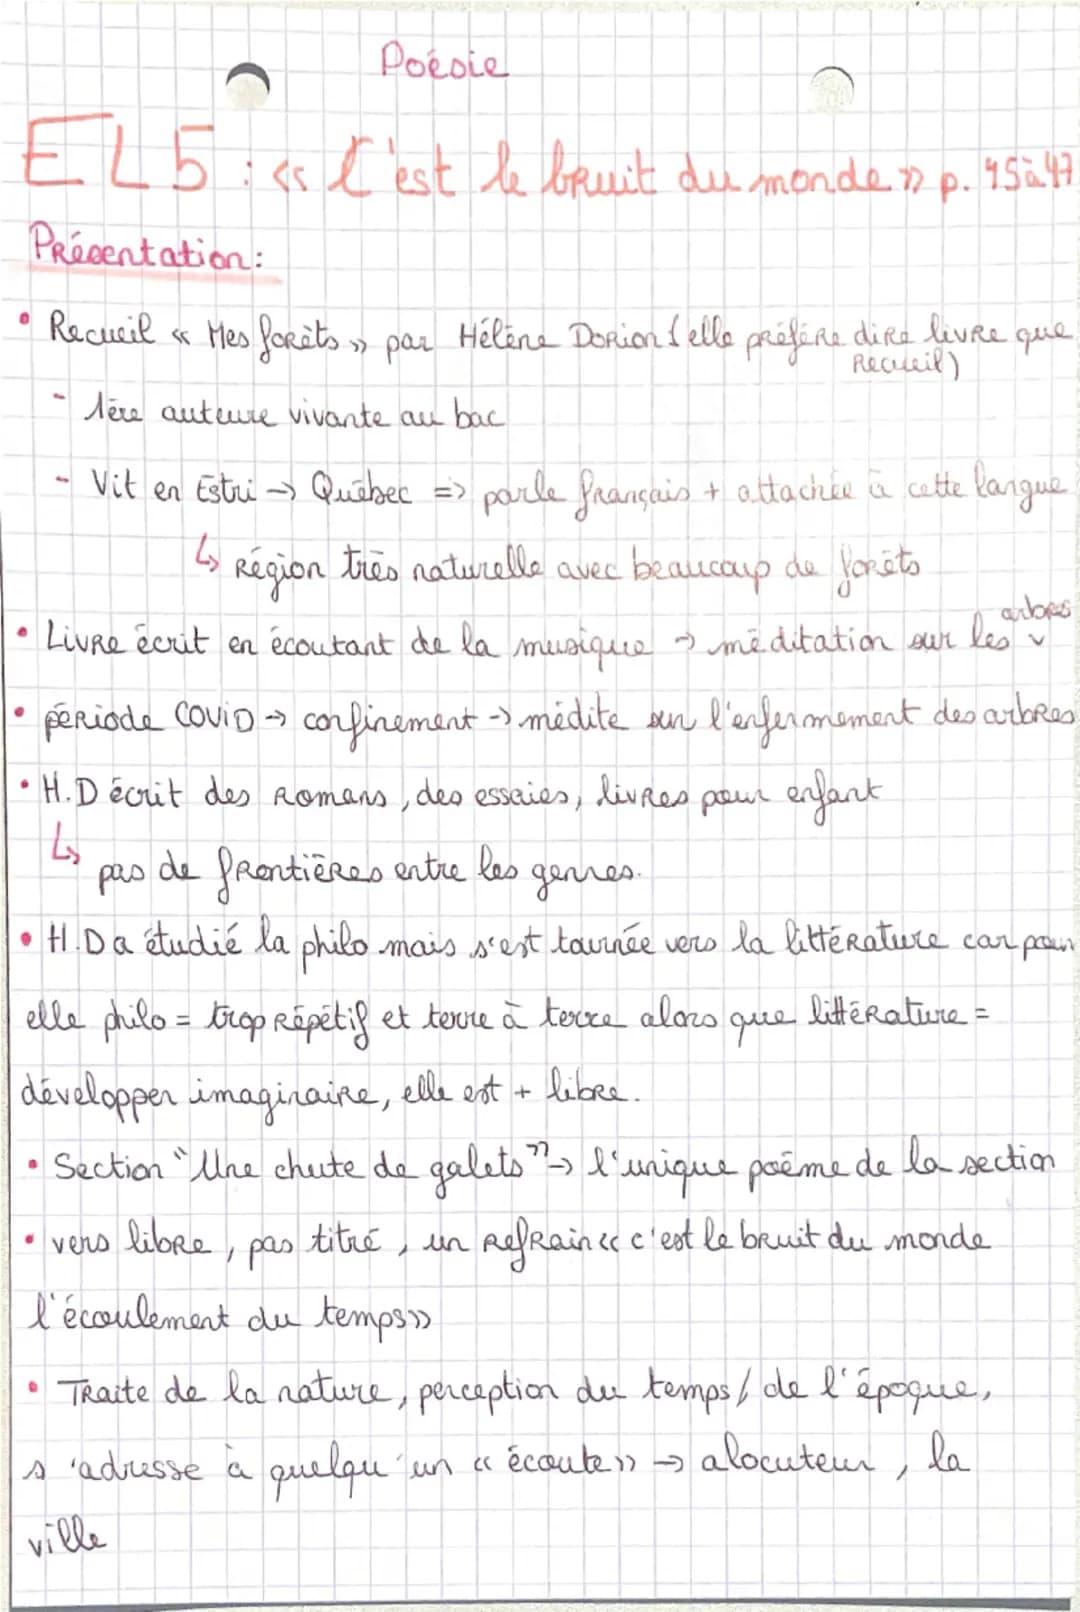 Poésie
EL5 : « C'est le bruit du monde » p. 45 à 47
Présentation :
• Recueil « Mes forêts » par Hélène Dorion (elle préfère dire livre que
Recueil)
- 1ère auteure vivante au bac
- Vit en Estri → Québec => parle français + attachée à cette langue
↳ Région très naturelle avec beaucoup de forêts
arbres
• Livre écrit en écoutant de la musique → méditation sur les v
• période COVID → confinement → médite sur l'enfermement des arbres
• H.D écrit des romans, des essaies, livres pour enfant
↳ pas de frontières entre les genres.
• H.D a étudié la philo mais s'est tournée vers la littérature car pour
elle philo = trop répétif et terre à terre alors que littérature =
développer imaginaire, elle est + libre.
• Section "Une chute de galets" → l'unique poème de la section
• vers libre, pas titré, un refrain « c'est le bruit du monde
l'écoulement du temps »
• Traite de la nature, perception du temps / de l'époque,
s'adresse à quelqu'un « écoute » → alocuteur, la
ville